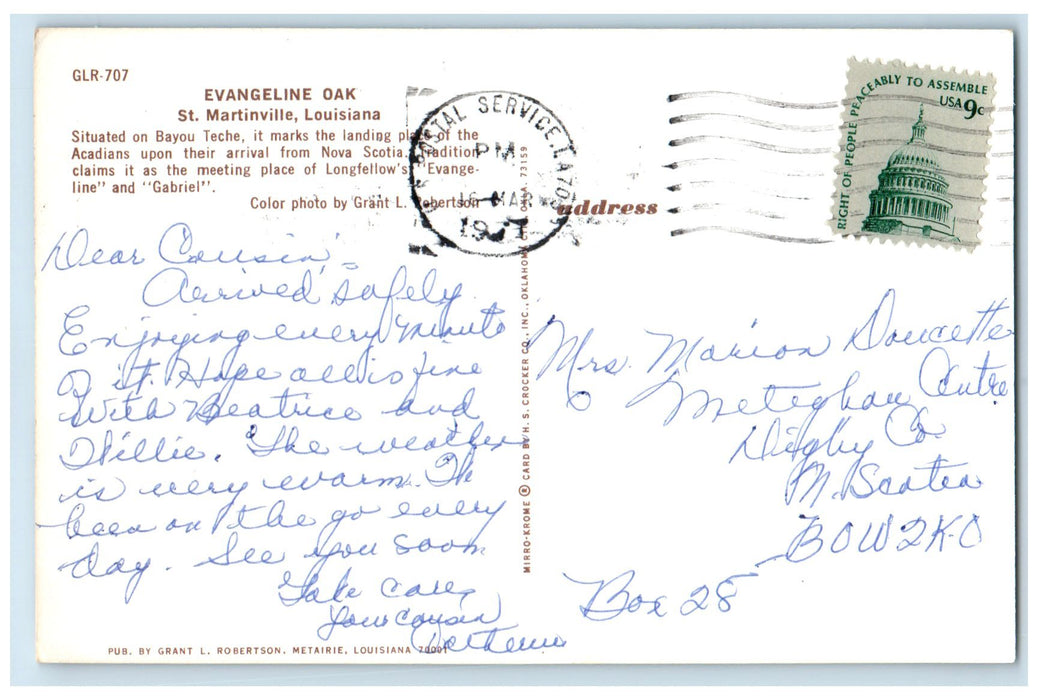 GLR-707
EVANGELINE OAK
St. Martinville, Louisiana
Situated on Bayou Teche, it marks the landing place of the
Acadians upon their arrival from Nova Scotia. Tradition
claims it as the meeting place of Longfellow's "Evange-
line" and "Gabriel".
Color photo by Grant L. Robertson
Dear Cousin,
Arrived safely
Enjoying every minute
of it. Hope all is fine
with Beatrice and
Willie. The weather
is very warm.
been on the go every
day. See you soon
Take care,
Your cousin
PUB. BY GRANT L. ROBERTSON, METAIRIE, LOUISIANA 70001
MIRRO-KROME ® CARD BY H. S. CROCKER CO., INC., OKLAHOMA 73159
POSTAL SERVICE, LA
PM
MAR
address
RIGHT OF PEOPLE PEACEABLY TO ASSEMBLE
USA 9c
Mrs. Marion Doucette
Meteghan Centre
Digby Co
N. Scotia
BOW2K-O
Box 28